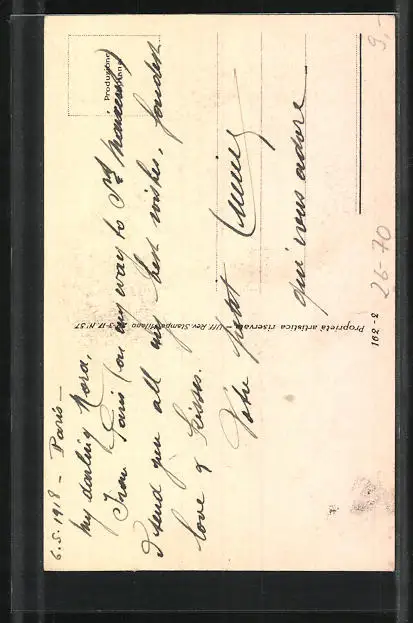 6.5.1918 - Paris -
My darling Nora,
From Paris (on my way to St Nazaire)
I send you all my best wishes, fondest
love & kisses.
Votre petit
qui vous adore
Produzione
Proprietà artistica riservata - Uff. Rev. Stampa Milano 2-3-17. N° 57
162-2
26-70
9,-